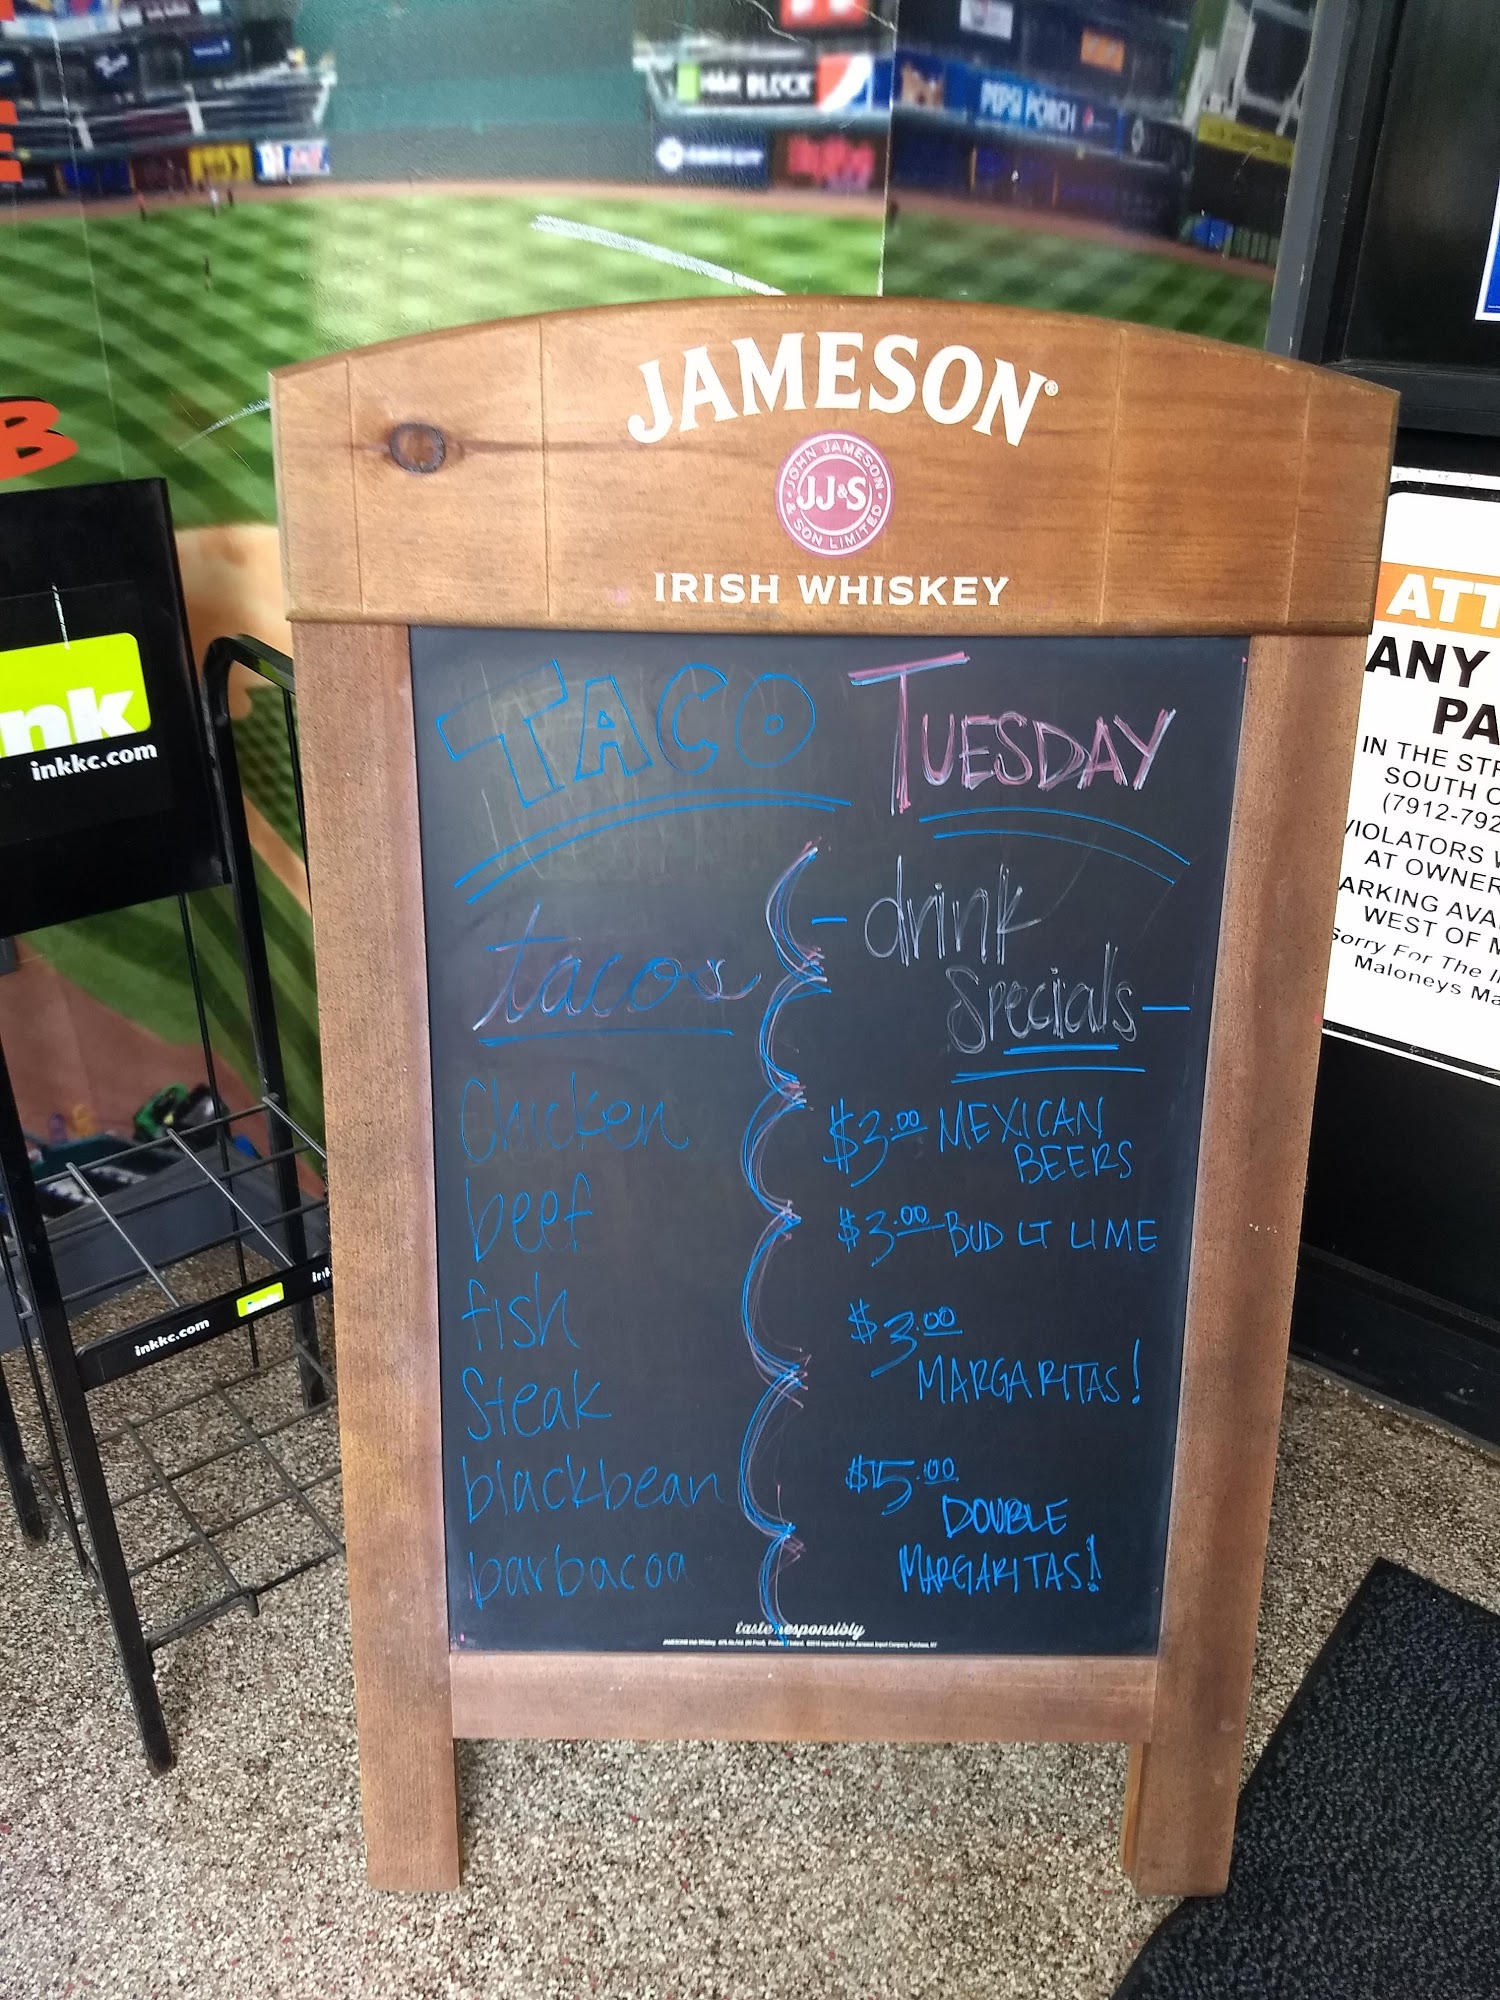 H&R BLOCK
PEPSI PORCH
B
JAMESON®
JOHN JAMESON
JJ&S
& SON LIMITED
IRISH WHISKEY
TACO TUESDAY
tacos
Chicken
beef
fish
Steak
blackbean
barbacoa
- drink
Specials -
$3.00 MEXICAN
BEERS
$3.00 BUD LT LIME
$3.00
MARGARITAS!
$5.00
DOUBLE
MARGARITAS!
taste responsibly
nk
inkkc.com
inkkc.com
ink
ATT
ANY
PA
IN THE STR
SOUTH O
(7912-792
VIOLATORS W
AT OWNER
ARKING AVA
WEST OF M
Sorry For The I
Maloneys Ma